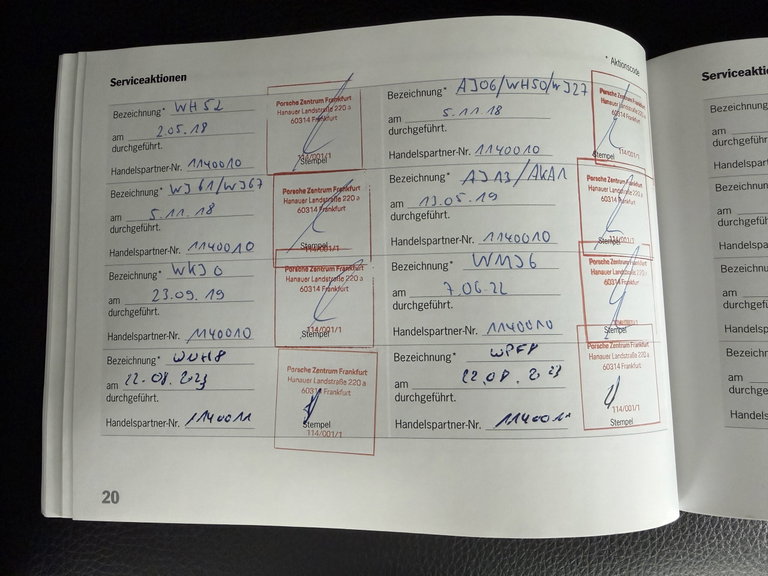 * Aktionscode
Serviceaktionen
Bezeichnung* WH52
am 2.05.18
durchgeführt.
Handelspartner-Nr. 1140010
Porsche Zentrum Frankfurt
Hanauer Landstraße 220 a
60314 Frankfurt
114/001/1
Stempel
Bezeichnung* AJ06/WH50/WJ27
am 5.11.18
durchgeführt.
Handelspartner-Nr. 1140010
Porsche Zentrum Frankfurt
Hanauer Landstraße 220 a
60314 Frankfurt
114/001/1
Stempel
Bezeichnung* WJ61/WJ67
am 5.11.18
durchgeführt.
Handelspartner-Nr. 1140010
Porsche Zentrum Frankfurt
Hanauer Landstraße 220 a
60314 Frankfurt
114/001/1
Stempel
Bezeichnung* AJ13/AKA1
am 13.05.19
durchgeführt.
Handelspartner-Nr. 1140010
Porsche Zentrum Frankfurt
Hanauer Landstraße 220 a
60314 Frankfurt
114/001/1
Stempel
Bezeichnung* WKJ0
am 23.09.19
durchgeführt.
Handelspartner-Nr. 1140010
Porsche Zentrum Frankfurt
Hanauer Landstraße 220 a
60314 Frankfurt
114/001/1
Stempel
Bezeichnung* WMJ6
am 7.06.22
durchgeführt.
Handelspartner-Nr. 1140010
Porsche Zentrum Frankfurt
Hanauer Landstraße 220 a
60314 Frankfurt
Stempel
Bezeichnung*
am 22.08.2023
durchgeführt.
Handelspartner-Nr. 1140011
Porsche Zentrum Frankfurt
Hanauer Landstraße 220 a
60314 Frankfurt
Stempel
114/001/1
Bezeichnung*
am 22.08.2023
durchgeführt.
Handelspartner-Nr. 1140011
Porsche Zentrum Frankfurt
Hanauer Landstraße 220 a
60314 Frankfurt
114/001/1
Stempel
20
Bezeichnung
am
durchgeführt